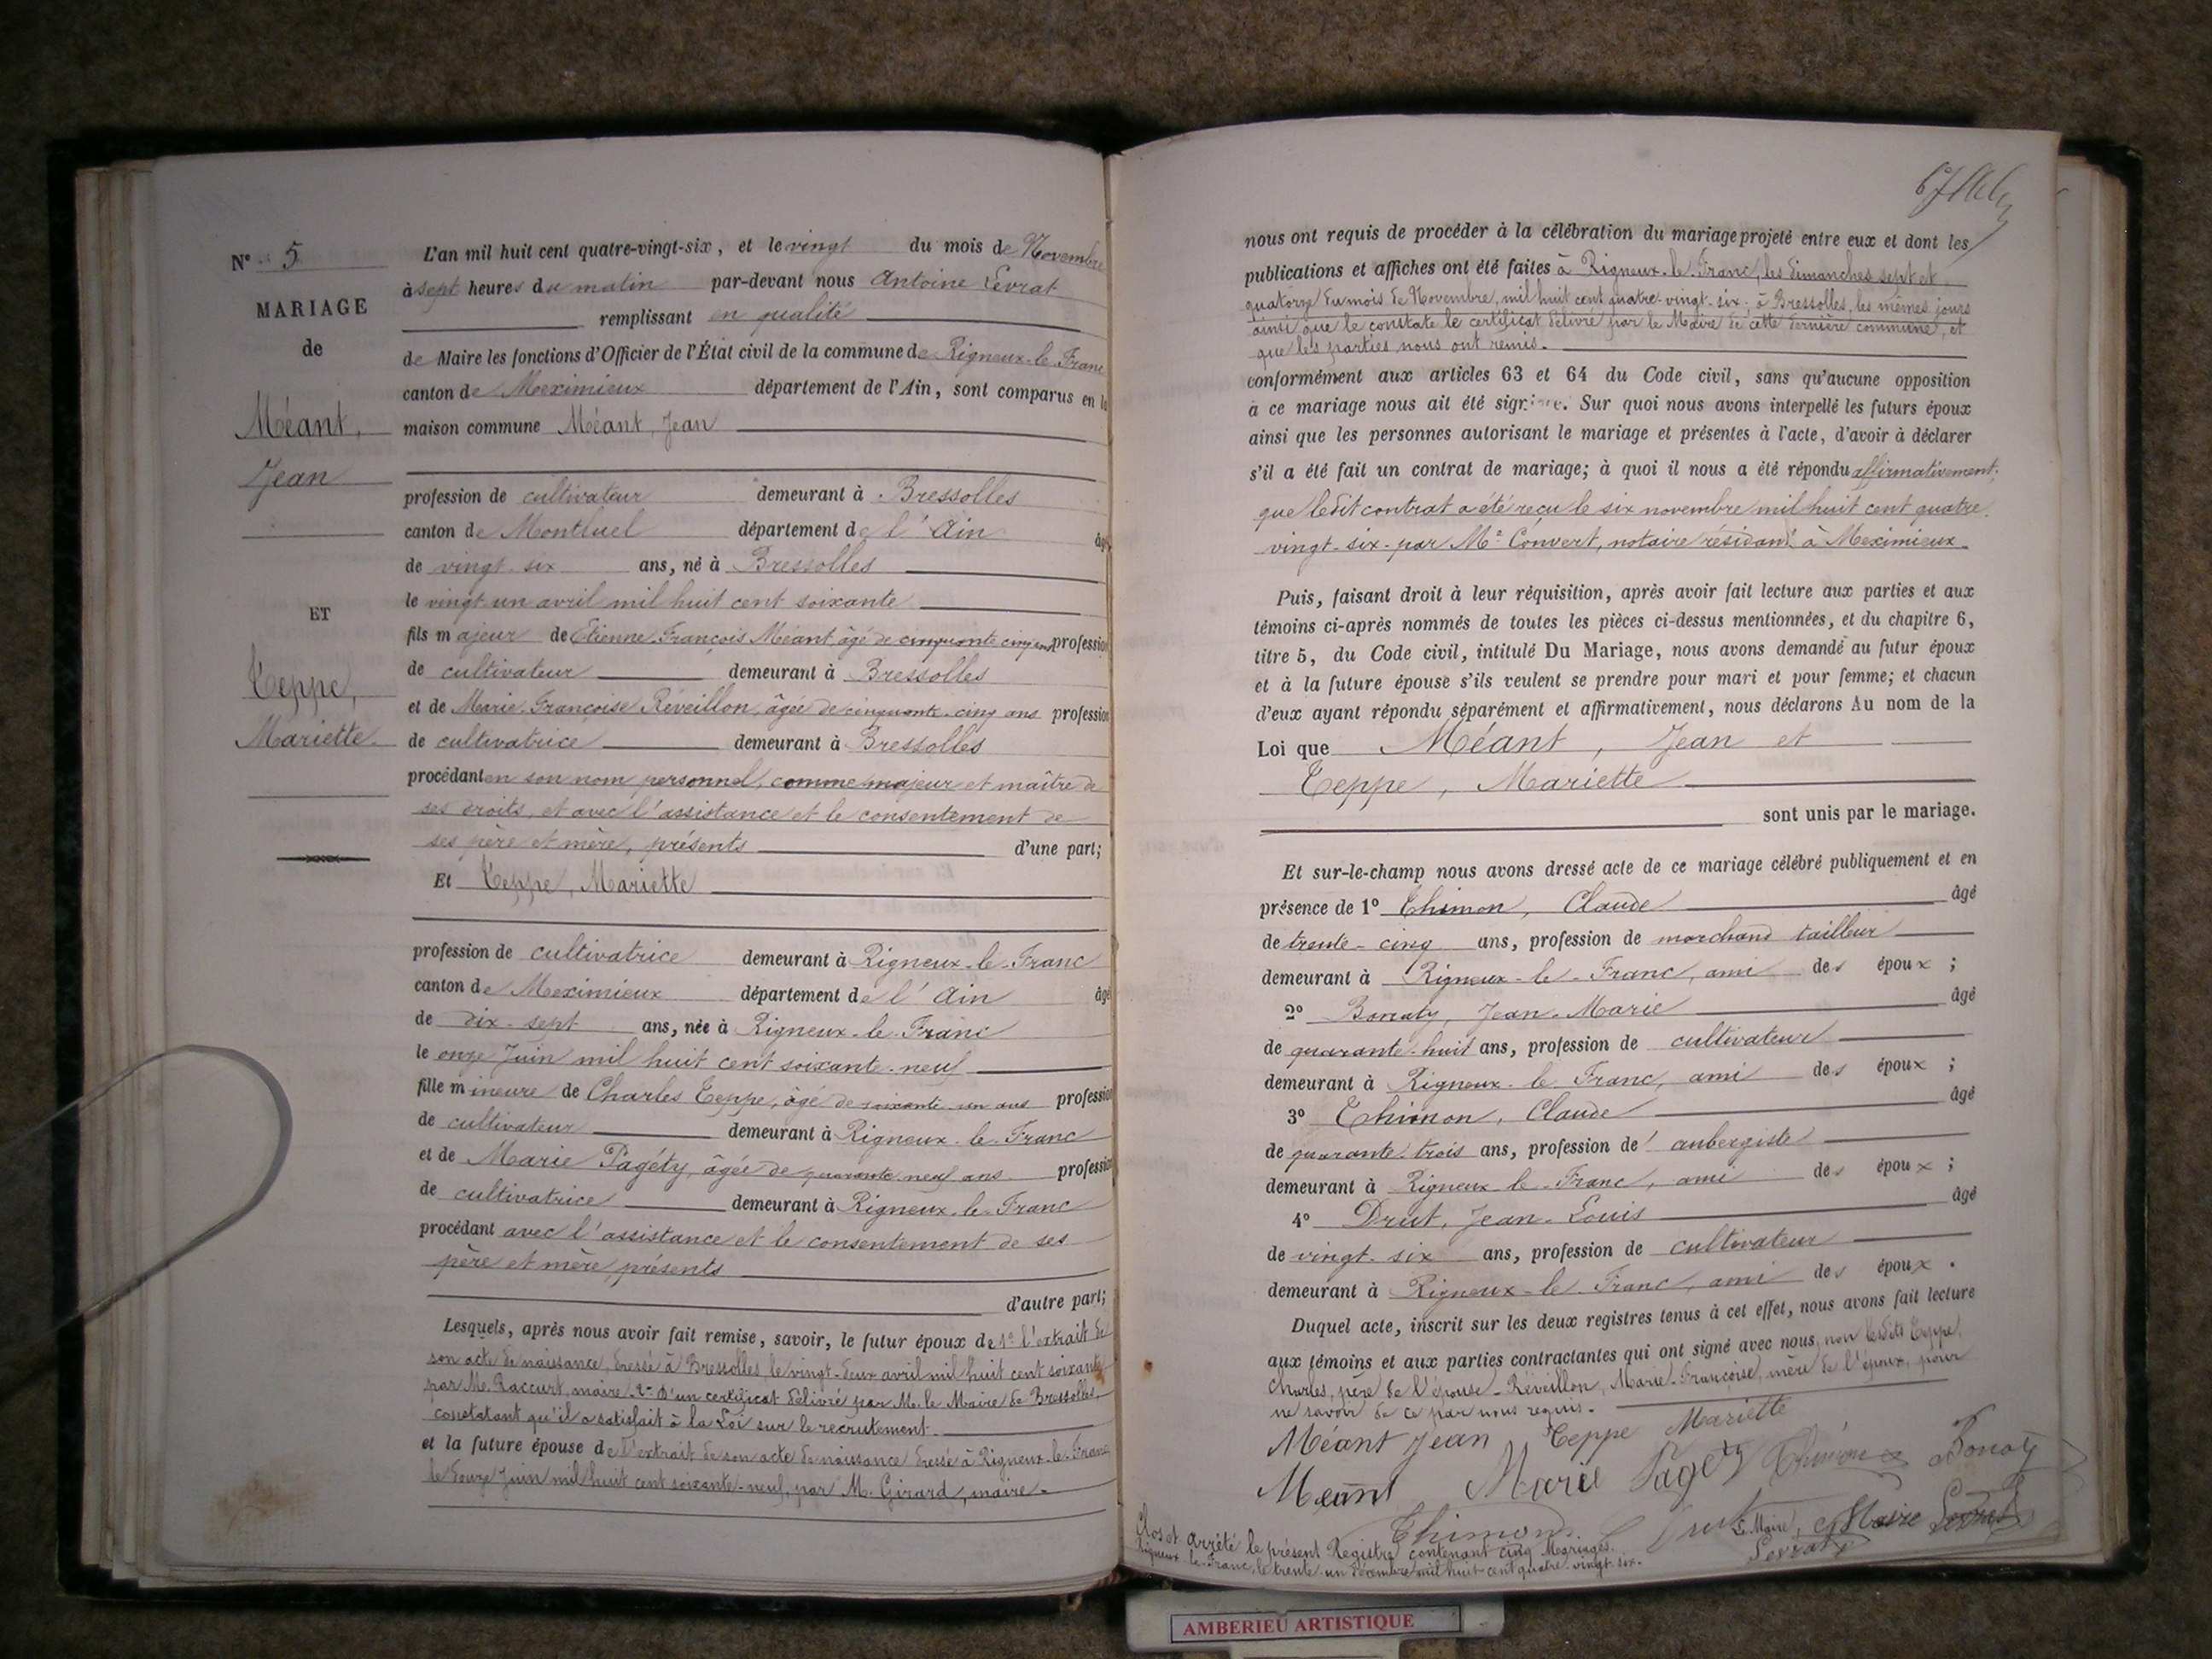 N° 5
MARIAGE
de
Méant,
Jean
ET
Teppe,
Mariette
L'an mil huit cent quatre-vingt-six, et le vingt du mois de Novembre
à sept heures du matin par-devant nous Antoine Levrat
remplissant en qualité
de Maire les fonctions d'Officier de l'État civil de la commune de Rigneux-le-Franc
canton de Meximieux département de l'Ain, sont comparus en la
maison commune Méant, Jean
profession de cultivateur demeurant à Bressolles
canton de Montluel département de l'Ain âgé
de vingt-six ans, né à Bressolles
le vingt-un avril mil huit cent soixante
fils majeur de Etienne François Méant, âgé de cinquante cinq ans profession
de cultivateur demeurant à Bressolles
et de Marie Françoise Réveillon, âgée de cinquante-cinq ans profession
de cultivatrice demeurant à Bressolles
procédant en son nom personnel, comme majeur et maître de
ses droits, et avec l'assistance et le consentement de
ses père et mère, présents d'une part;
Et Teppe, Mariette
profession de cultivatrice demeurant à Rigneux-le-Franc
canton de Meximieux département de l'Ain âgé
de dix-sept ans, née à Rigneux-le-Franc
le onze Juin mil huit cent soixante-neuf
fille mineure de Charles Teppe, âgé de soixante-un ans profession
de cultivateur demeurant à Rigneux-le-Franc
et de Marie Pagéty, âgée de quarante-neuf ans profession
de cultivatrice demeurant à Rigneux-le-Franc
procédant avec l'assistance et le consentement de ses
père et mère, présents
d'autre part;
Lesquels, après nous avoir fait remise, savoir, le futur époux de 1° l'extrait de
son acte de naissance, dressé à Bressolles, le vingt-deux avril mil huit cent soixante
par M. Raccurt, maire 2° d'un certificat délivré par M. le Maire de Bressolles,
constatant qu'il a satisfait à la Loi sur le recrutement.
et la future épouse de l'extrait de son acte de naissance dressé à Rigneux-le-Franc
le douze Juin mil huit cent soixante-neuf, par M. Girard, maire.
67
nous ont requis de procéder à la célébration du mariage projeté entre eux et dont les
publications et affiches ont été faites à Rigneux-le-Franc, les dimanches sept et
quatorze du mois de Novembre, mil huit cent quatre-vingt-six; à Bressolles, les mêmes jours
ainsi que le constate le certificat délivré par le Maire de cette dernière commune, et
que les parties nous ont remis.
conformément aux articles 63 et 64 du Code civil, sans qu'aucune opposition
à ce mariage nous ait été signifiée. Sur quoi nous avons interpellé les futurs époux
ainsi que les personnes autorisant le mariage et présentes à l'acte, d'avoir à déclarer
s'il a été fait un contrat de mariage; à quoi il nous a été répondu affirmativement;
que ledit contrat a été reçu le six novembre mil huit cent quatre-
vingt-six par Me Convert, notaire résidant à Meximieux.
Puis, faisant droit à leur réquisition, après avoir fait lecture aux parties et aux
témoins ci-après nommés de toutes les pièces ci-dessus mentionnées, et du chapitre 6,
titre 5, du Code civil, intitulé Du Mariage, nous avons demandé au futur époux
et à la future épouse s'ils veulent se prendre pour mari et pour femme; et chacun
d'eux ayant répondu séparément et affirmativement, nous déclarons Au nom de la
Loi que Méant, Jean et
Teppe, Mariette
sont unis par le mariage.
Et sur-le-champ nous avons dressé acte de ce mariage célébré publiquement et en
présence de 1° Thimon, Claude âgé
de trente-cinq ans, profession de marchand tailleur
demeurant à Rigneux-le-Franc, ami des époux;
2° Bonaty, Jean-Marie âgé
de quarante-huit ans, profession de cultivateur
demeurant à Rigneux-le-Franc, ami des époux;
3° Thimon, Claude âgé
de quarante-trois ans, profession de aubergiste
demeurant à Rigneux-le-Franc, ami des époux;
4° Drut, Jean-Louis âgé
de vingt-six ans, profession de cultivateur
demeurant à Rigneux-le-Franc, ami des époux.
Duquel acte, inscrit sur les deux registres tenus à cet effet, nous avons fait lecture
aux témoins et aux parties contractantes qui ont signé avec nous, non lesdits Teppe,
Charles, père de l'épouse - Réveillon, Marie-Françoise, mère de l'époux, pour
ne savoir de ce par nous requis.
Méant Jean Teppe Mariette
Méant Marie Pagéty Thimon Bonaty
Thimon Drut Le Maire, Levrat
Clos et arrêté le présent Registre contenant cinq Mariages.
Rigneux-le-Franc, le trente-un décembre mil huit cent quatre-vingt-six.
Levrat
AMBERIEU ARTISTIQUE